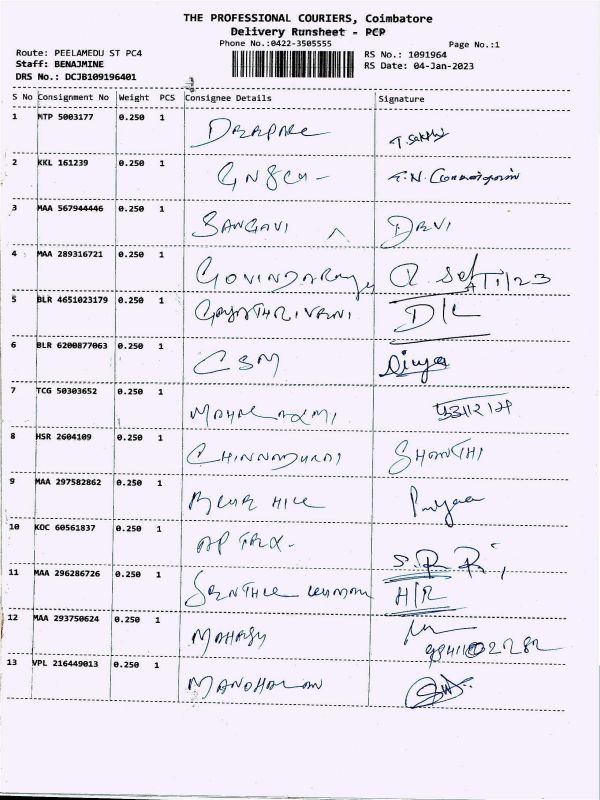 THE PROFESSIONAL COURIERS, Coimbatore
Delivery Runsheet - PCP
Phone No.:0422-3505555 Page No.:1
Route: PEELAMEDU ST PC4 RS No.: 1091964
Staff: BENAJMINE RS Date: 04-Jan-2023
DRS No.: DCJB109196401
S No Consignment No Weight PCS Consignee Details Signature
1 MTP 5003177 0.250 1
2 KKL 161239 0.250 1
3 MAA 567944446 0.250 1 SANGAVI DEVI
4 MAA 289316721 0.250 1 GOVINDARAJU
5 BLR 4651023179 0.250 1 GAYATHRI VANI D/L
6 BLR 6200877063 0.250 1 CSM Divya
7 TCG 50303652 0.250 1 MAHALAXMI
8 HSR 2604109 0.250 1 CHINNADURAI SHANTHI
9 MAA 297582862 0.250 1 BLUE HILL
10 KOC 60561837 0.250 1
11 MAA 296286726 0.250 1 SENTHIL KUMAR H/R
12 MAA 293750624 0.250 1
13 VPL 216449013 0.250 1 MANOHARAN